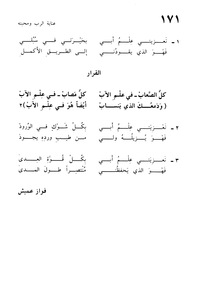 ١٧١
عناية الرب ومحبته
١ ـ تعزيتي علم أبي بحيرتي في سُبُلي
فهو الذي يقودني إلى الطريق الأكمل
القرار
كل الصعاب ـ في علم الأب كل مصاب ـ في علم الأب
ودمعك الذي ينساب أيضاً هو في علم الأب(٢)
٢ ـ تعزيتي علم أبي بكل شوك في الورود
فهو يزيله ولي من طيب ورده يجود
٣ ـ تعزيتي علم أبي بكل قوة العدى
فهو الذي يحفظني منتصراً طول المدى
فواز عميش